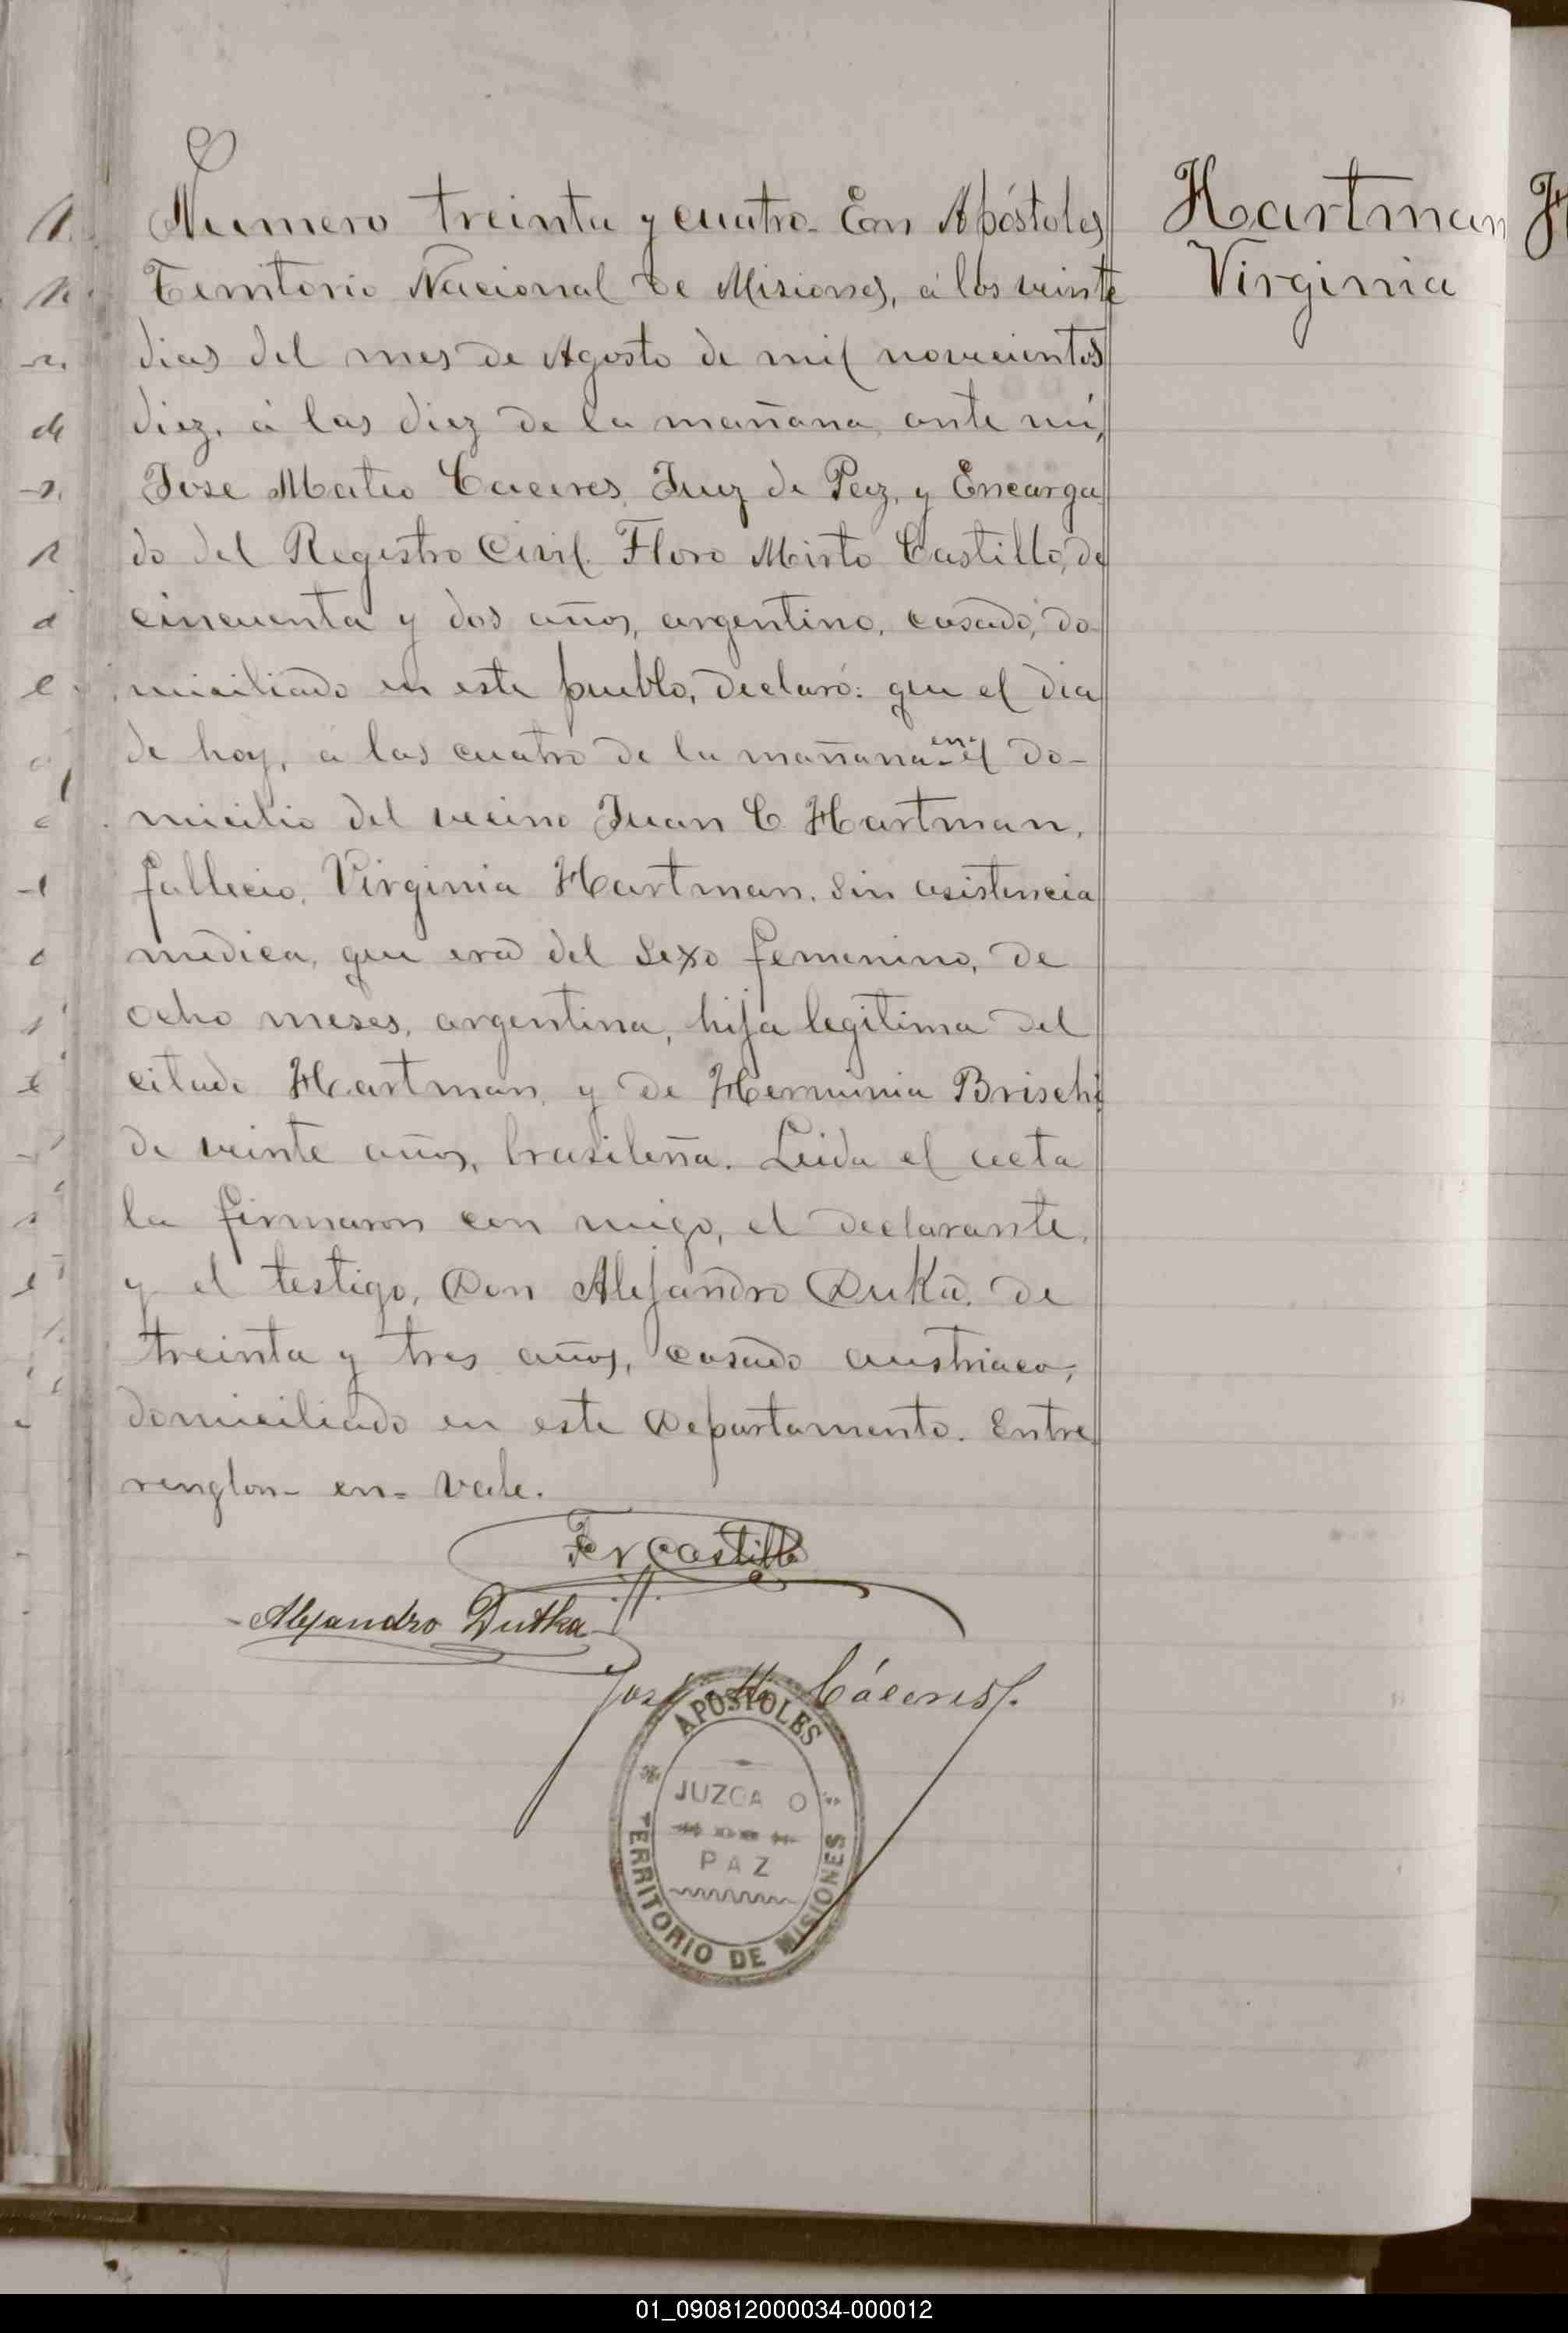 Hartman
Virginia
Numero treinta y cuatro. En Apóstoles
Territorio Nacional de Misiones, á los veinte
dias del mes de Agosto de mil novecientos
diez, á las diez de la mañana, ante mi,
Jose Mateo Caceres, Juez de Paz, y Encarga
do del Registro Civil. Floro Mirto Castillo, de
cincuenta y dos años, argentino, casado, do
miciliado en este pueblo, declaró: que el dia
de hoy, á las cuatro de la mañana en el do-
micilio del vecino Juan C. Hartman,
fallecio, Virginia Hartman, sin asistencia
medica, que era del sexo femenino, de
ocho meses, argentina, hija legitima del
citado Hartman, y de Herminia Brischi
de veinte años, brasileña. Leida el acta
la firmaron con migo, el declarante,
y el testigo, Don Alejandro Duka, de
treinta y tres años, casado austriaco,
domiciliado en este Departamento. Entre
renglon - en = vale.
Castillo
Alejandro Dutka
José M. Cáceres
APOSTOLES
JUZGA O
PAZ
TERRITORIO DE MISIONES
01_090812000034-000012